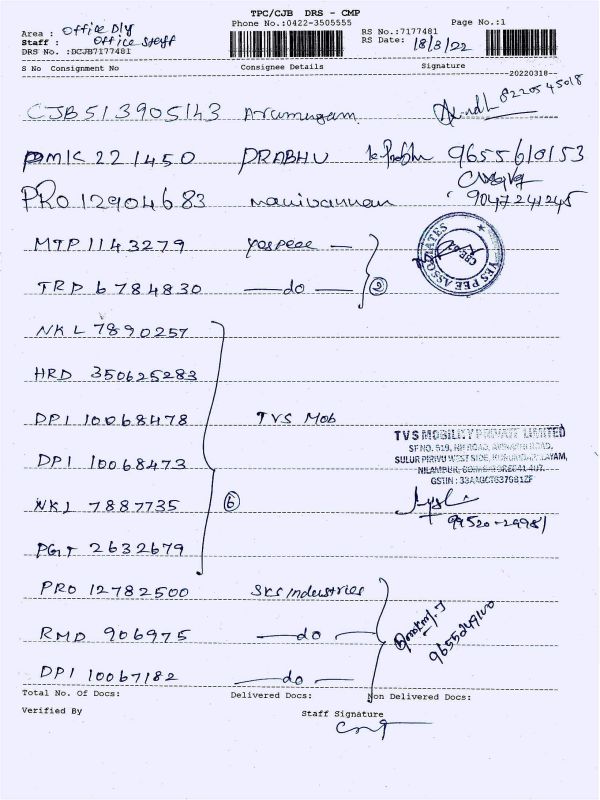 TPC/CJB DRS - CMP
Phone No.:0422-3505555
Page No.:1
Area : Office Dly
Staff : Office Staff
DRS No. :DCJB7177481
RS No.:7177481
RS Date: 18/3/22
S No Consignment No Consignee Details Signature
20220318
CJB513905143 Arumugam 8220545018
PMK 221450 PRABHU k. Prabhu 9655610153
PRO 12904683 manivannan 9047241245
MTP 1143279 Yespeee
TRP 6784830 —do— 2
YES PEE ASSOCIATES
CBE-02
NKL 7890257
HRD 350625283
DPI 10068478 TVS Mob
DPI 10068473
NKL 7887735 6
PGT 2632679
TVS MOBILITY PRIVATE LIMITED
SF NO. 519, ROAD, ROAD,
SULUR PIRIVU WEST SIDE,
NILAMBUR, COIMBATORE
GSTIN : 33AAGCT6376G1ZF
99520-29981
PRO 12782500 SKS Industries
RMD 906975 —do—
DPI 10067182 —do—
Total No. Of Docs: Delivered Docs: Non Delivered Docs:
Verified By Staff Signature